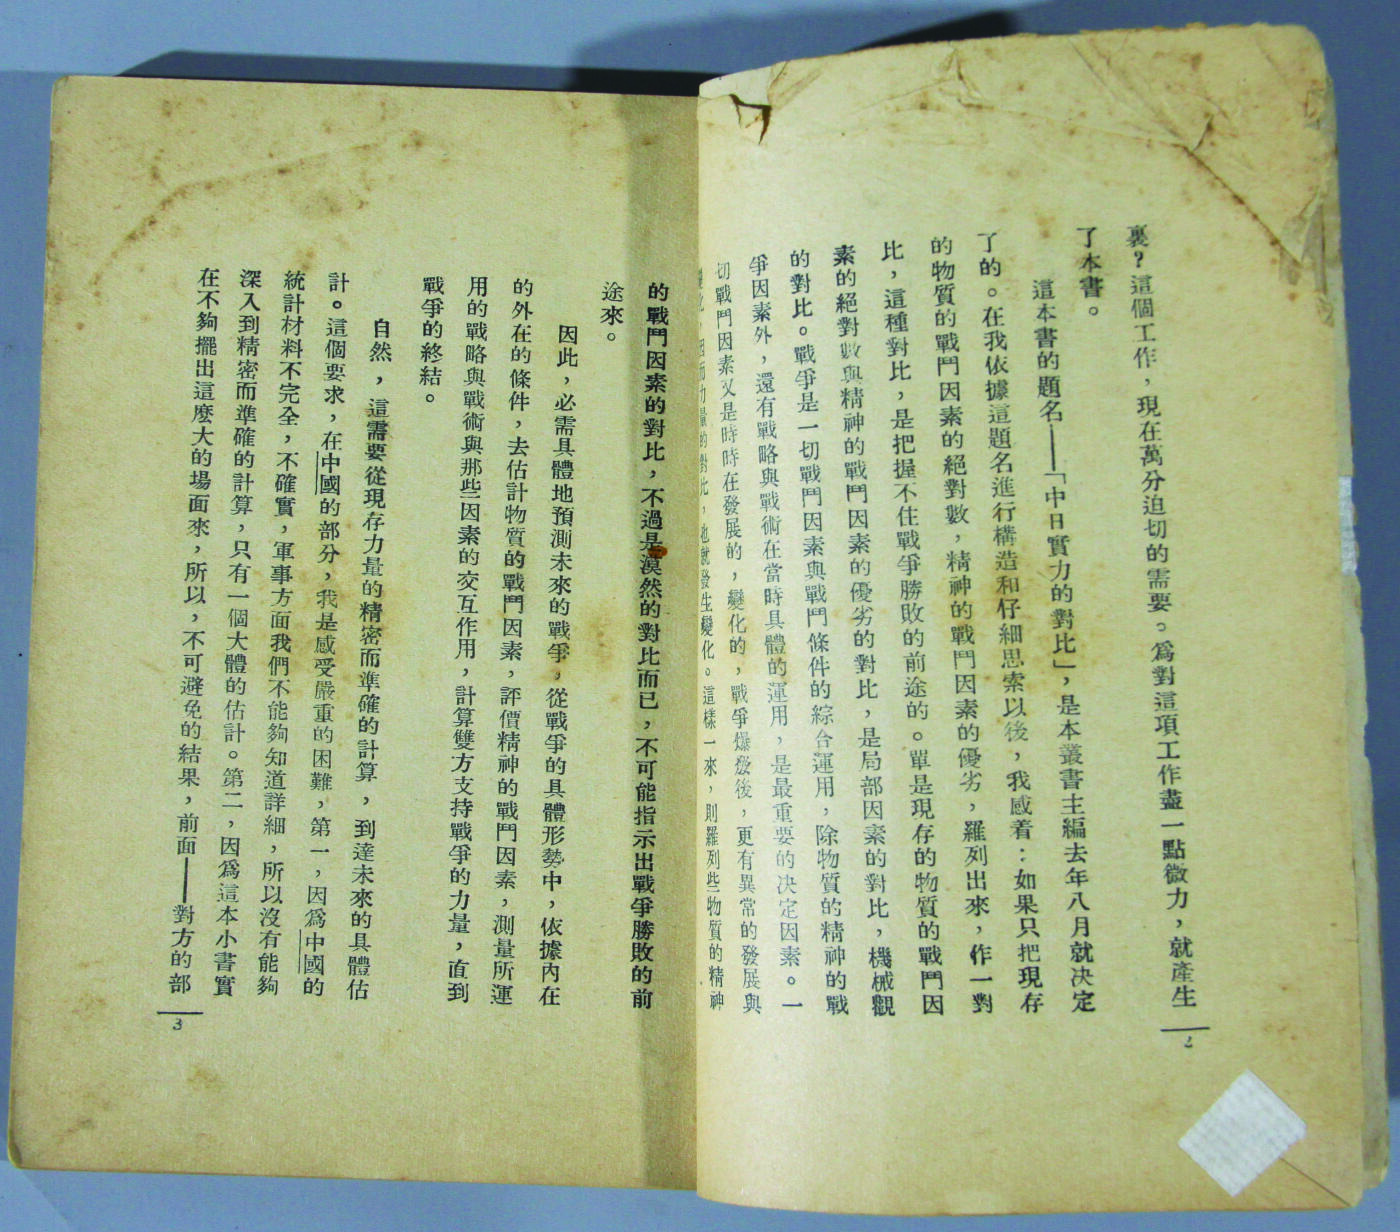 裏?這個工作,現在萬分迫切的需要。爲對這項工作盡一點微力,就產生
了本書。
這本書的題名——「中日實力的對比」,是本叢書主編去年八月就决定
了的。在我依據這題名進行構造和仔細思索以後,我感着:如果只把現存
的物質的戰鬥因素的絕對數,精神的戰鬥因素的優劣,羅列出來,作一對
比,這種對比,是把握不住戰爭勝敗的前途的。單是現存的物質的戰鬥因
素的絕對數與精神的戰鬥因素的優劣的對比,是局部因素的對比,機械觀
的對比。戰爭是一切戰鬥因素與戰鬥條件的綜合運用,除物質的精神的戰
爭因素外,還有戰略與戰術在當時具體的運用,是最重要的决定因素。一
切戰鬥因素又是時時在發展的,變化的,戰爭爆發後,更有異常的發展與
變化,因而力量的對比,也就發生變化。這樣一來,則羅列些物質的精神
2
的戰鬥因素的對比,不過是漠然的對比而已,不可能指示出戰爭勝敗的前
途來。
因此,必需具體地預測未來的戰爭,從戰爭的具體形勢中,依據內在
的外在的條件,去估計物質的戰鬥因素,評價精神的戰鬥因素,測量所運
用的戰略與戰術與那些因素的交互作用,計算雙方支持戰爭的力量,直到
戰爭的終結。
自然,這需要從現存力量的精密而準確的計算,到達未來的具體估
計。這個要求,在中國的部分,我是感受嚴重的困難,第一,因爲中國的
統計材料不完全,不確實,軍事方面我們不能夠知道詳細,所以沒有能夠
深入到精密而準確的計算,只有一個大體的估計。第二,因爲這本小書實
在不夠擺出這麼大的場面來,所以,不可避免的結果,前面——對方的部
3